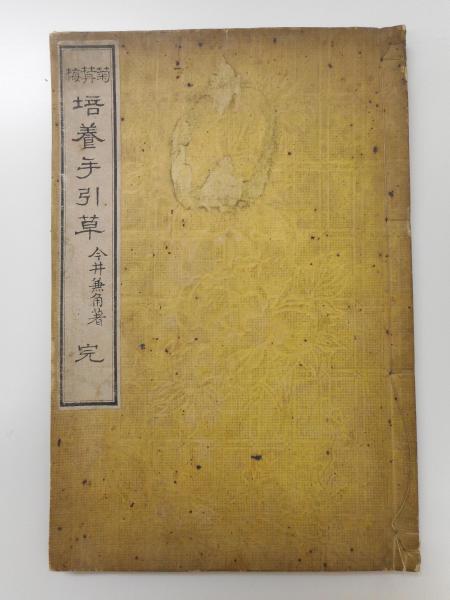 菊 梅
培養手引草
今井兼角著
完